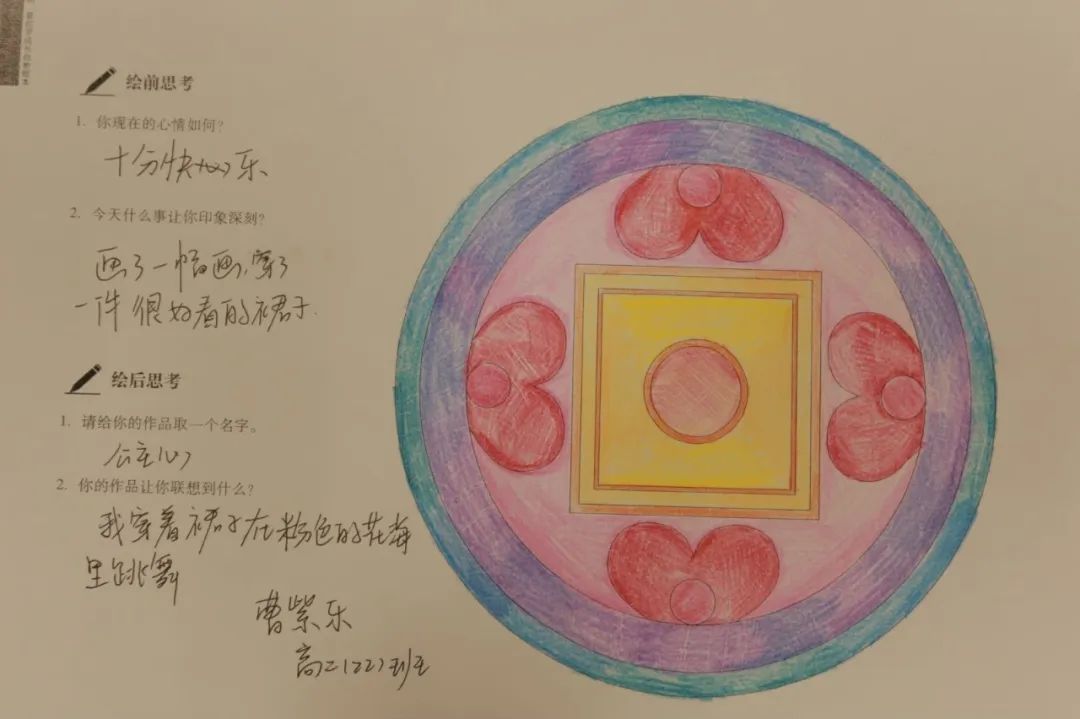 绘前思考
1. 你现在的心情如何?
十分快乐
2. 今天什么事让你印象深刻?
画了一幅画,穿了
一件很好看的裙子.
绘后思考
1. 请给你的作品取一个名字。
公主心
2. 你的作品让你联想到什么?
我穿着裙子在粉色的花海
里跳舞
曹紫乐
高二(22)班